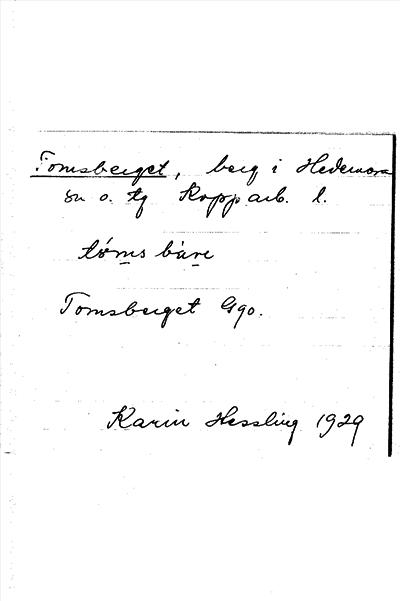 Tomsberget, berg i Hedemora
sn o. tg Kopparb. l.
tóms bàre
Tomsberget Ggo.
Karin Hessling 1929